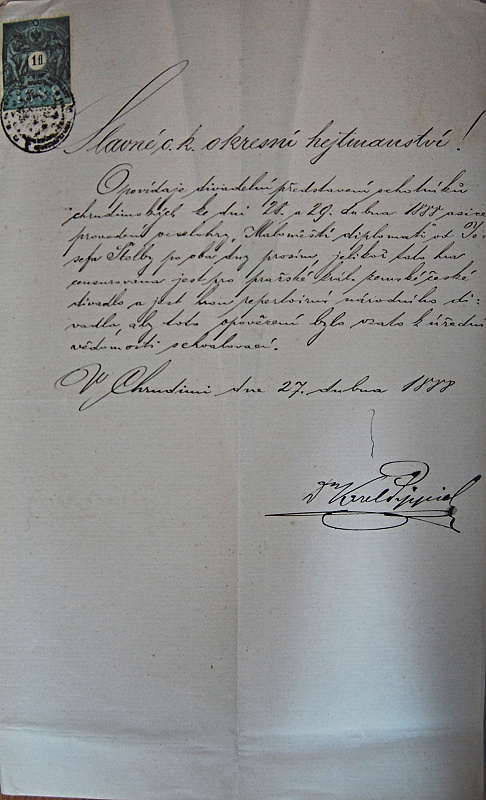 1 fl
Slavné c. k. okresní hejtmanství!
Opovídaje divadelní představení ochotníků
chrudimských ke dni 28. a 29. dubna 1888 a sice
provedení veselohry „Maloměstští diplomati" od Jo-
sefa Štolby po oba dny prosím, jelikož tato hra
censurována jest pro pražské král. zemské české
divadlo a jest hrou repertoirní národního di-
vadla, aby toto opověření bylo vzato k úřední
vědomosti schvalovací.
V Chrudimi dne 27. dubna 1888
Dr Karel Pippich